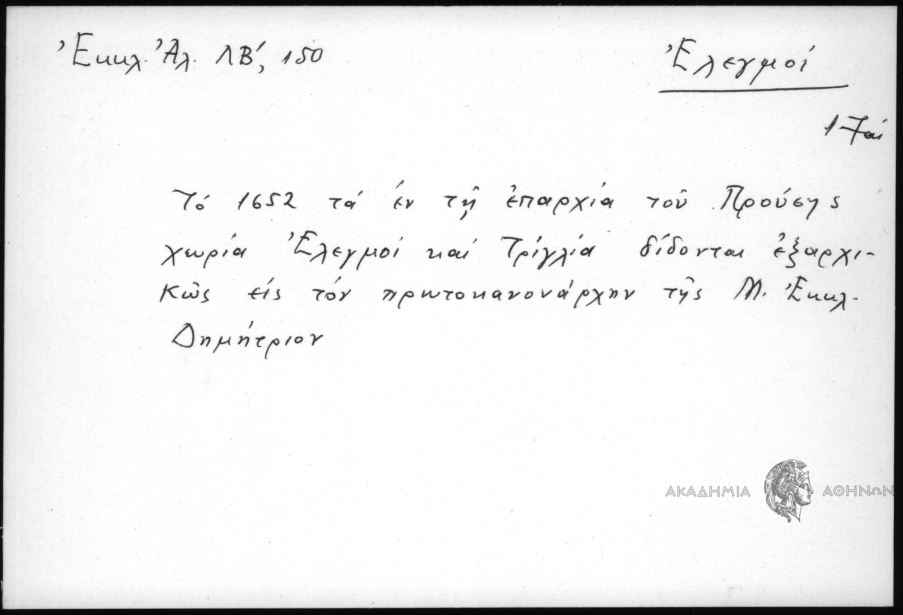 Ἐκκλ. Ἀλ. ΛΒ΄, 150
Ἐλεγμοί
Τό 1652 τά ἐν τῇ ἐπαρχίᾳ τοῦ Προύσης
χωρία Ἐλεγμοί καί Τρίγλια δίδονται ἐξαρχι-
κῶς εἰς τόν πρωτοκανονάρχην τῆς Μ. Ἐκκλ.
Δημήτριον
ΑΚΑΔΗΜΙΑ ΑΘΗΝΩΝ